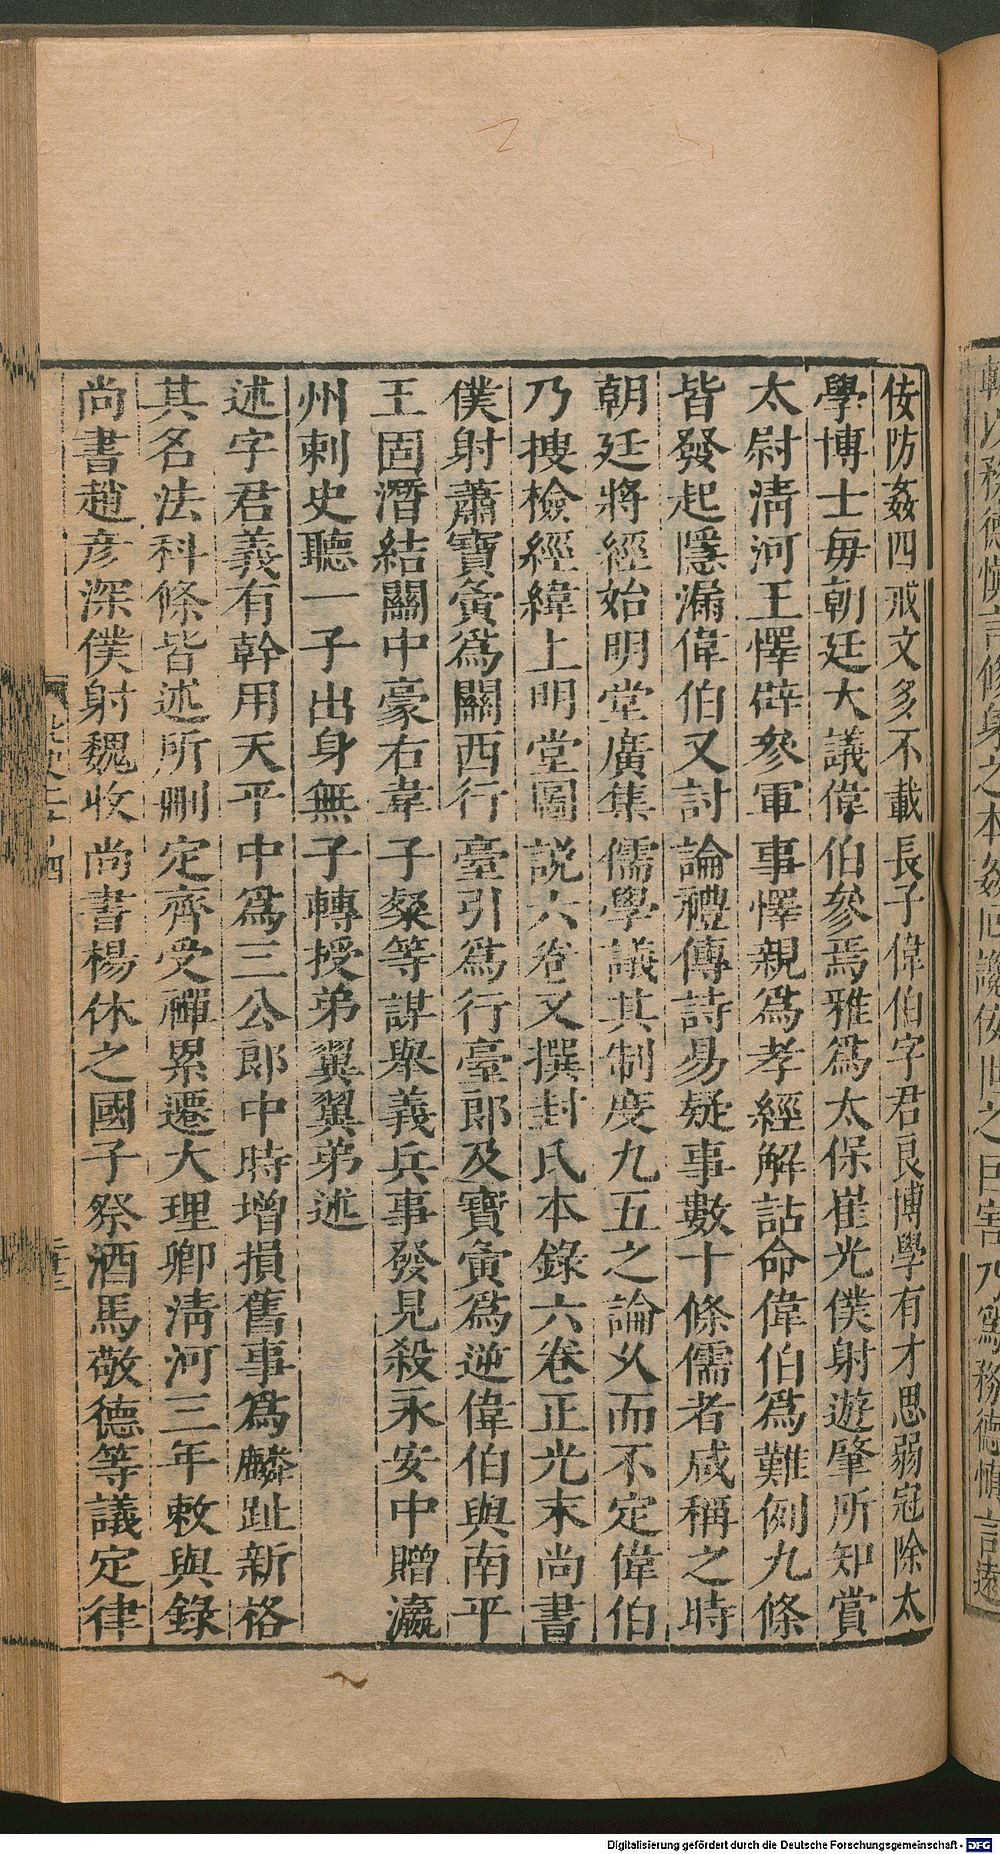 佞防姦四戒文多不載長子偉伯字君良博學有才思弱冠除太
學博士每朝廷大議偉伯參焉雅爲太保崔光僕射遊肇所知賞
太尉淸河王懌辟參軍事懌親爲孝經解詁命偉伯爲難例九條
皆發起隱漏偉伯又討論禮傳詩易疑事數十條儒者咸稱之時
朝廷將經始明堂廣集儒學議其制度九五之論久而不定偉伯
乃搜檢經緯上明堂圖説六卷又撰封氏本錄六卷正光末尚書
僕射蕭寶夤爲關西行臺引爲行臺郎及寶夤爲逆偉伯與南平
王固潛結關中豪右韋子粲等謀舉義兵事發見殺永安中贈瀛
州刺史聽一子出身無子轉授弟翼翼弟述
述字君義有幹用天平中爲三公郎中時增損舊事爲麟趾新格
其名法科條皆述所刪定齊受禪累遷大理卿淸河三年敕與錄
尚書趙彦深僕射魏收尚書楊休之國子祭酒馬敬德等議定律
Digitalisierung gefördert durch die Deutsche Forschungsgemeinschaft - DFG